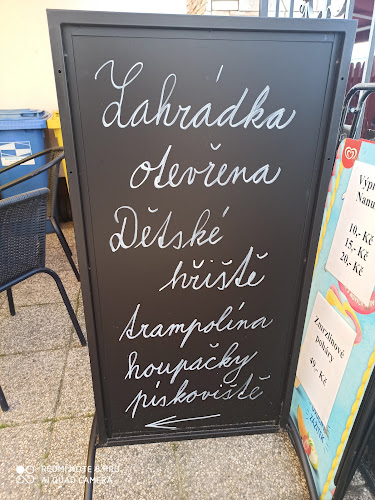 Zahrádka
otevřena
Dětské
hřiště
trampolína
houpačky
pískoviště
Výpr
Nanu
10,- Kč
15,- Kč
20,- Kč
Zmrzlinové
poháry
49,- Kč
REDMI NOTE 8 PRO
AI QUAD CAMERA